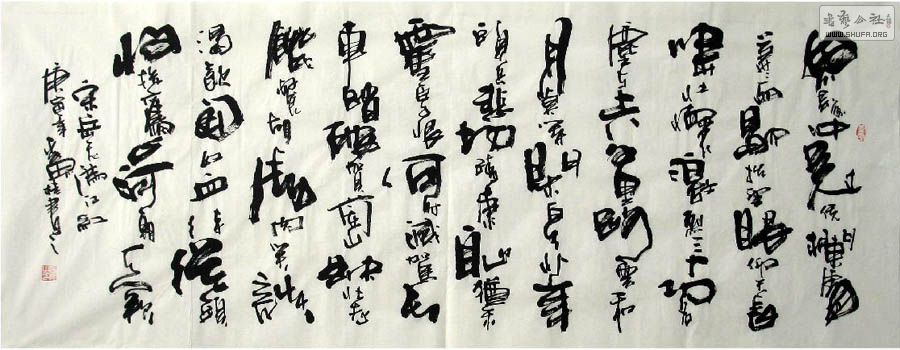 怒髮冲冠凭阑處瀟
瀟雨歇抬望眼仰天長
嘯壯懷激烈三十功名
塵與土八千里路雲和
月莫等閑白了少年
頭空悲切靖康恥猶未
雪臣子恨何時滅駕長
車踏破賀蘭山缺壯志
飢餐胡虜肉笑談
渴飲匈奴血待從頭
收拾舊山河朝天闕
宋岳飛滿江紅
庚寅年
書藝公社
WWW.SHUFA.ORG